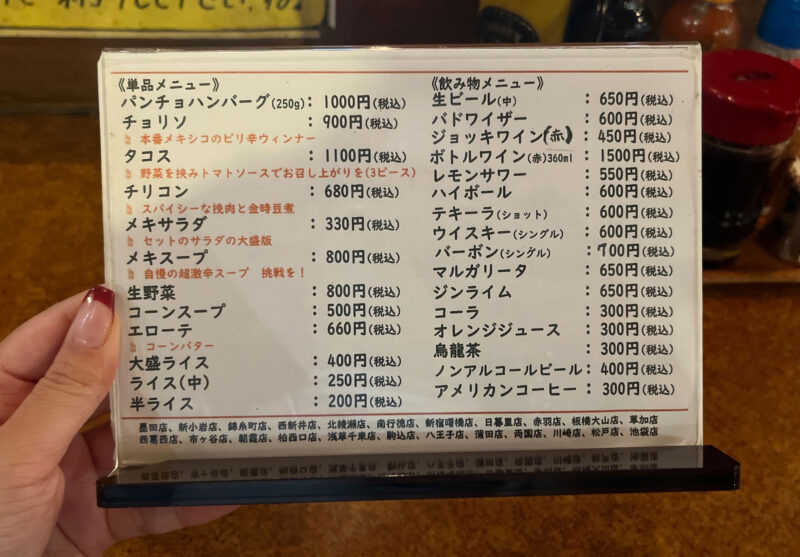 《単品メニュー》
パンチョハンバーグ(250g)： 1000円(税込)
チョリソ ： 900円(税込)
本番メキシコのピリ辛ウィンナー
タコス ： 1100円(税込)
野菜を挟みトマトソースでお召し上がりを(3ピース)
チリコン ： 680円(税込)
スパイシーな挽肉と金時豆煮
メキサラダ ： 330円(税込)
セットのサラダの大盛版
メキスープ ： 800円(税込)
自慢の超激辛スープ 挑戦を！
生野菜 ： 800円(税込)
コーンスープ ： 500円(税込)
エローテ ： 660円(税込)
コーンバター
大盛ライス ： 400円(税込)
ライス(中) ： 250円(税込)
半ライス ： 200円(税込)
《飲み物メニュー》
生ビール(中) ： 650円(税込)
バドワイザー ： 600円(税込)
ジョッキワイン(赤)： 450円(税込)
ボトルワイン(赤)360ml ： 1500円(税込)
レモンサワー ： 550円(税込)
ハイボール ： 600円(税込)
テキーラ(ショット) ： 600円(税込)
ウイスキー(シングル) ： 600円(税込)
バーボン(シングル) ：700円(税込)
マルガリータ ： 650円(税込)
ジンライム ： 650円(税込)
コーラ ： 300円(税込)
オレンジジュース ： 300円(税込)
烏龍茶 ： 300円(税込)
ノンアルコールビール：400円(税込)
アメリカンコーヒー ： 300円(税込)
墨田店、新小岩店、錦糸町店、西新井店、北綾瀬店、南行徳店、新宿曙橋店、日暮里店、赤羽店、板橋大山店、草加店
西葛西店、市ヶ谷店、朝霞店、柏西口店、浅草千束店、駒込店、八王子店、蒲田店、両国店、川崎店、松戸店、池袋店